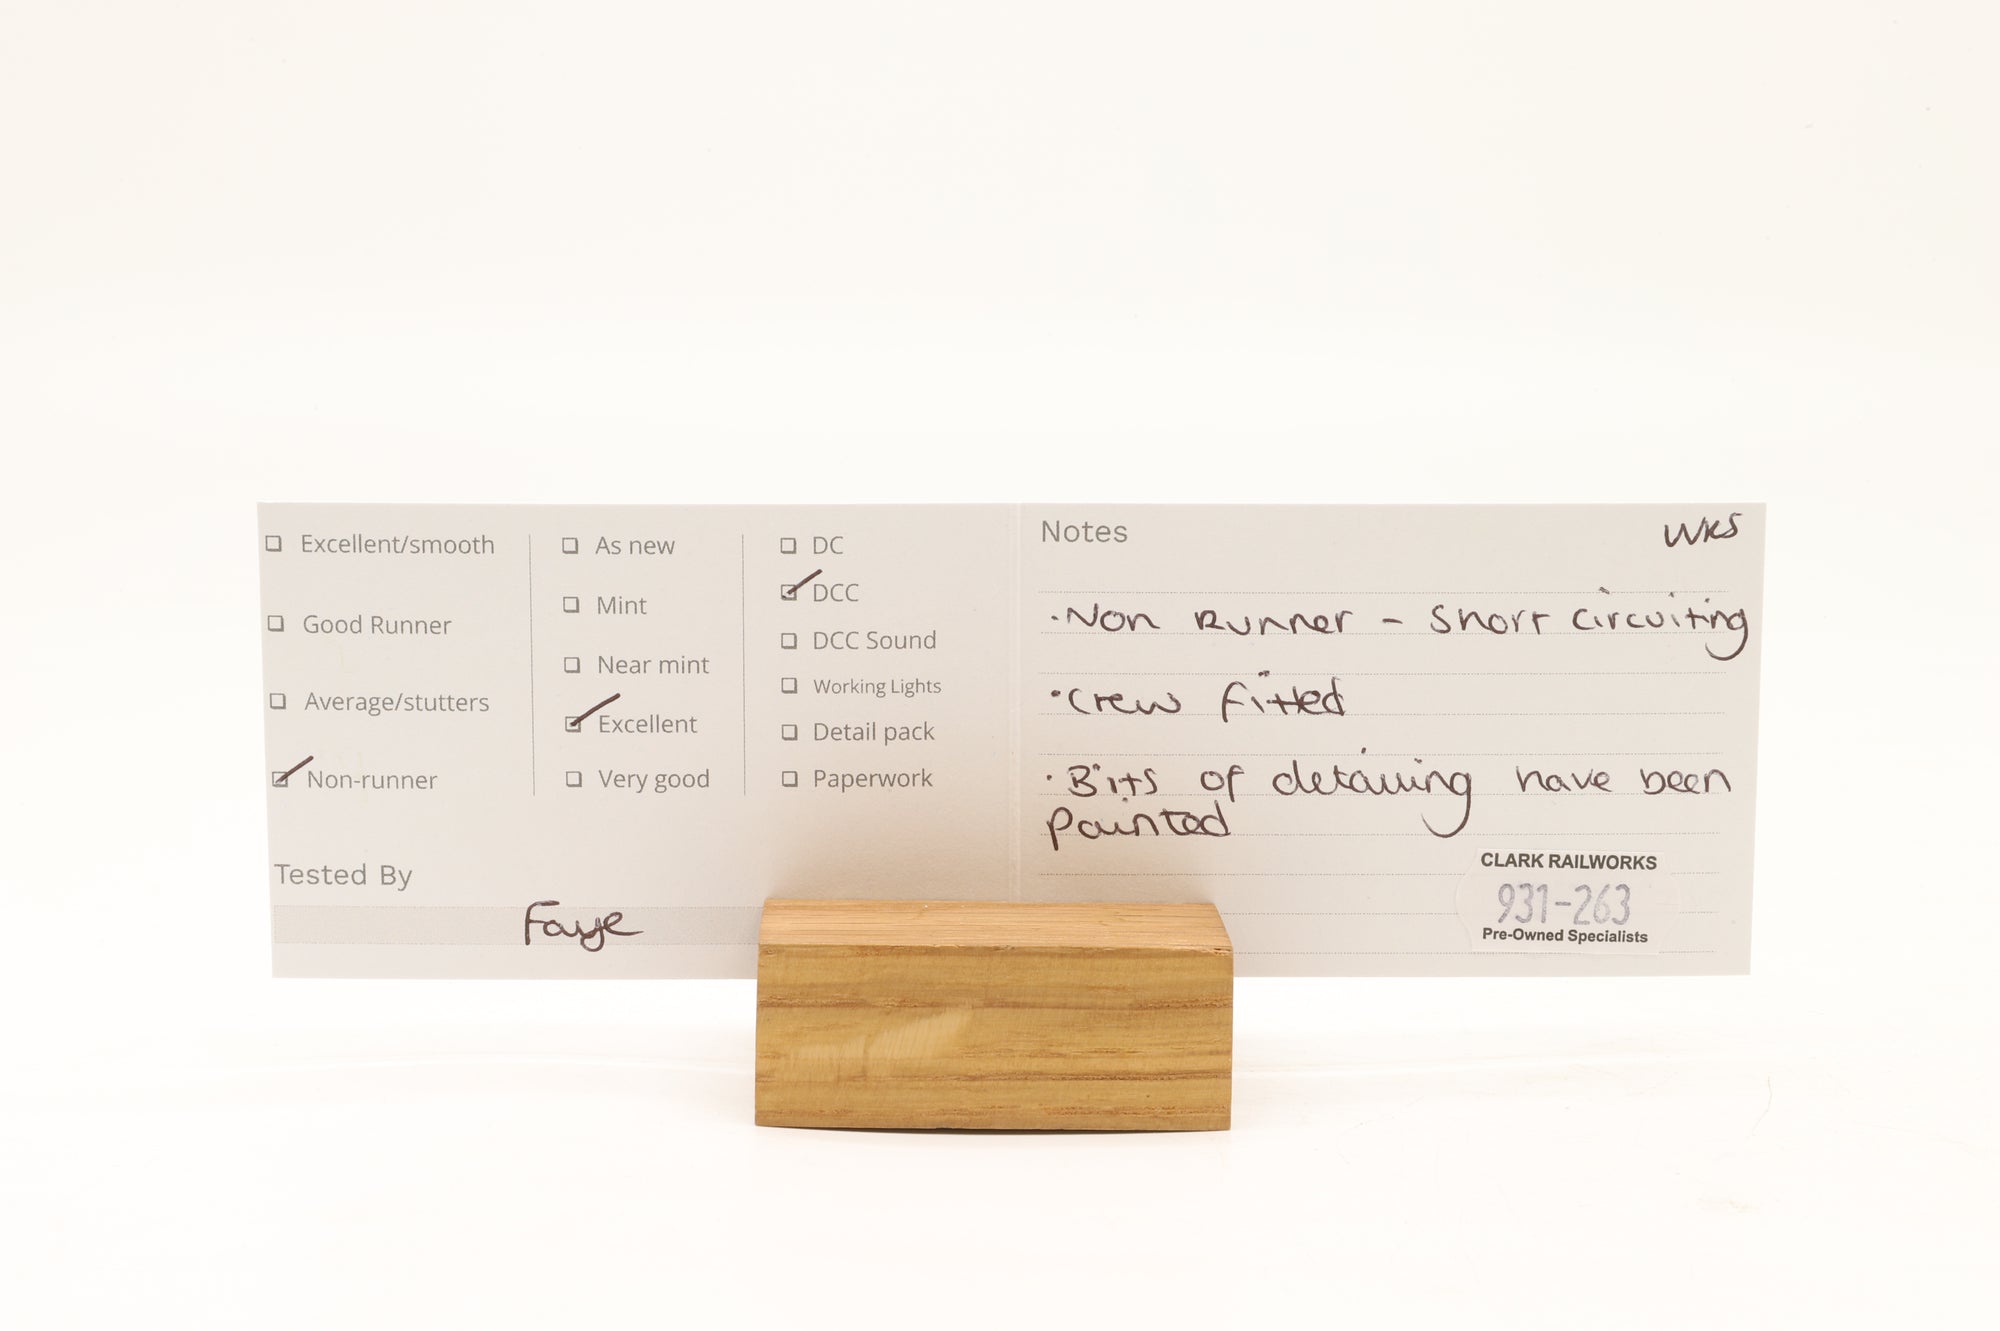 Excellent/smooth
Good Runner
Average/stutters
Non-runner
As new
Mint
Near mint
Excellent
Very good
DC
DCC
DCC Sound
Working Lights
Detail pack
Paperwork
Tested By
Faye
Notes
WKS
·Non Runner - Short circuiting
·Crew fitted
·Bits of detailing have been
painted
CLARK RAILWORKS
931-263
Pre-Owned Specialists